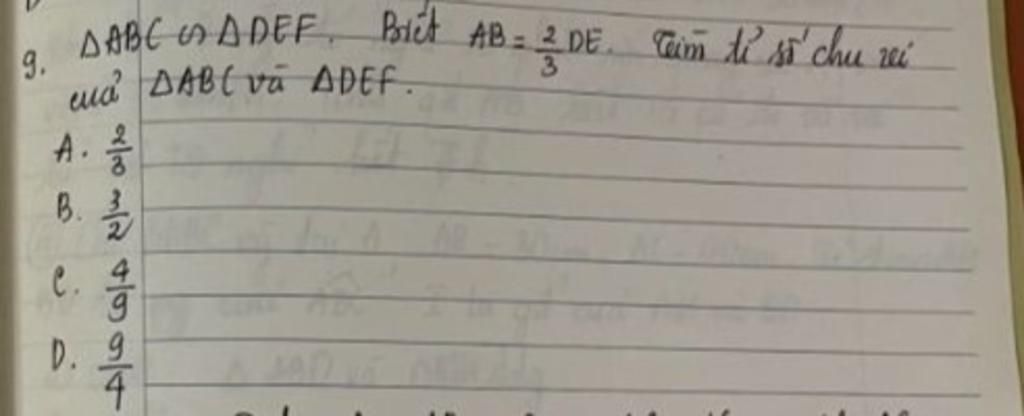 9. ΔABC ∽ ΔDEF. Biết AB = 2/3 DE. Tìm tỉ số chu vi
của ΔABC và ΔDEF.
A. 2/3
B. 3/2
C. 4/9
D. 9/4